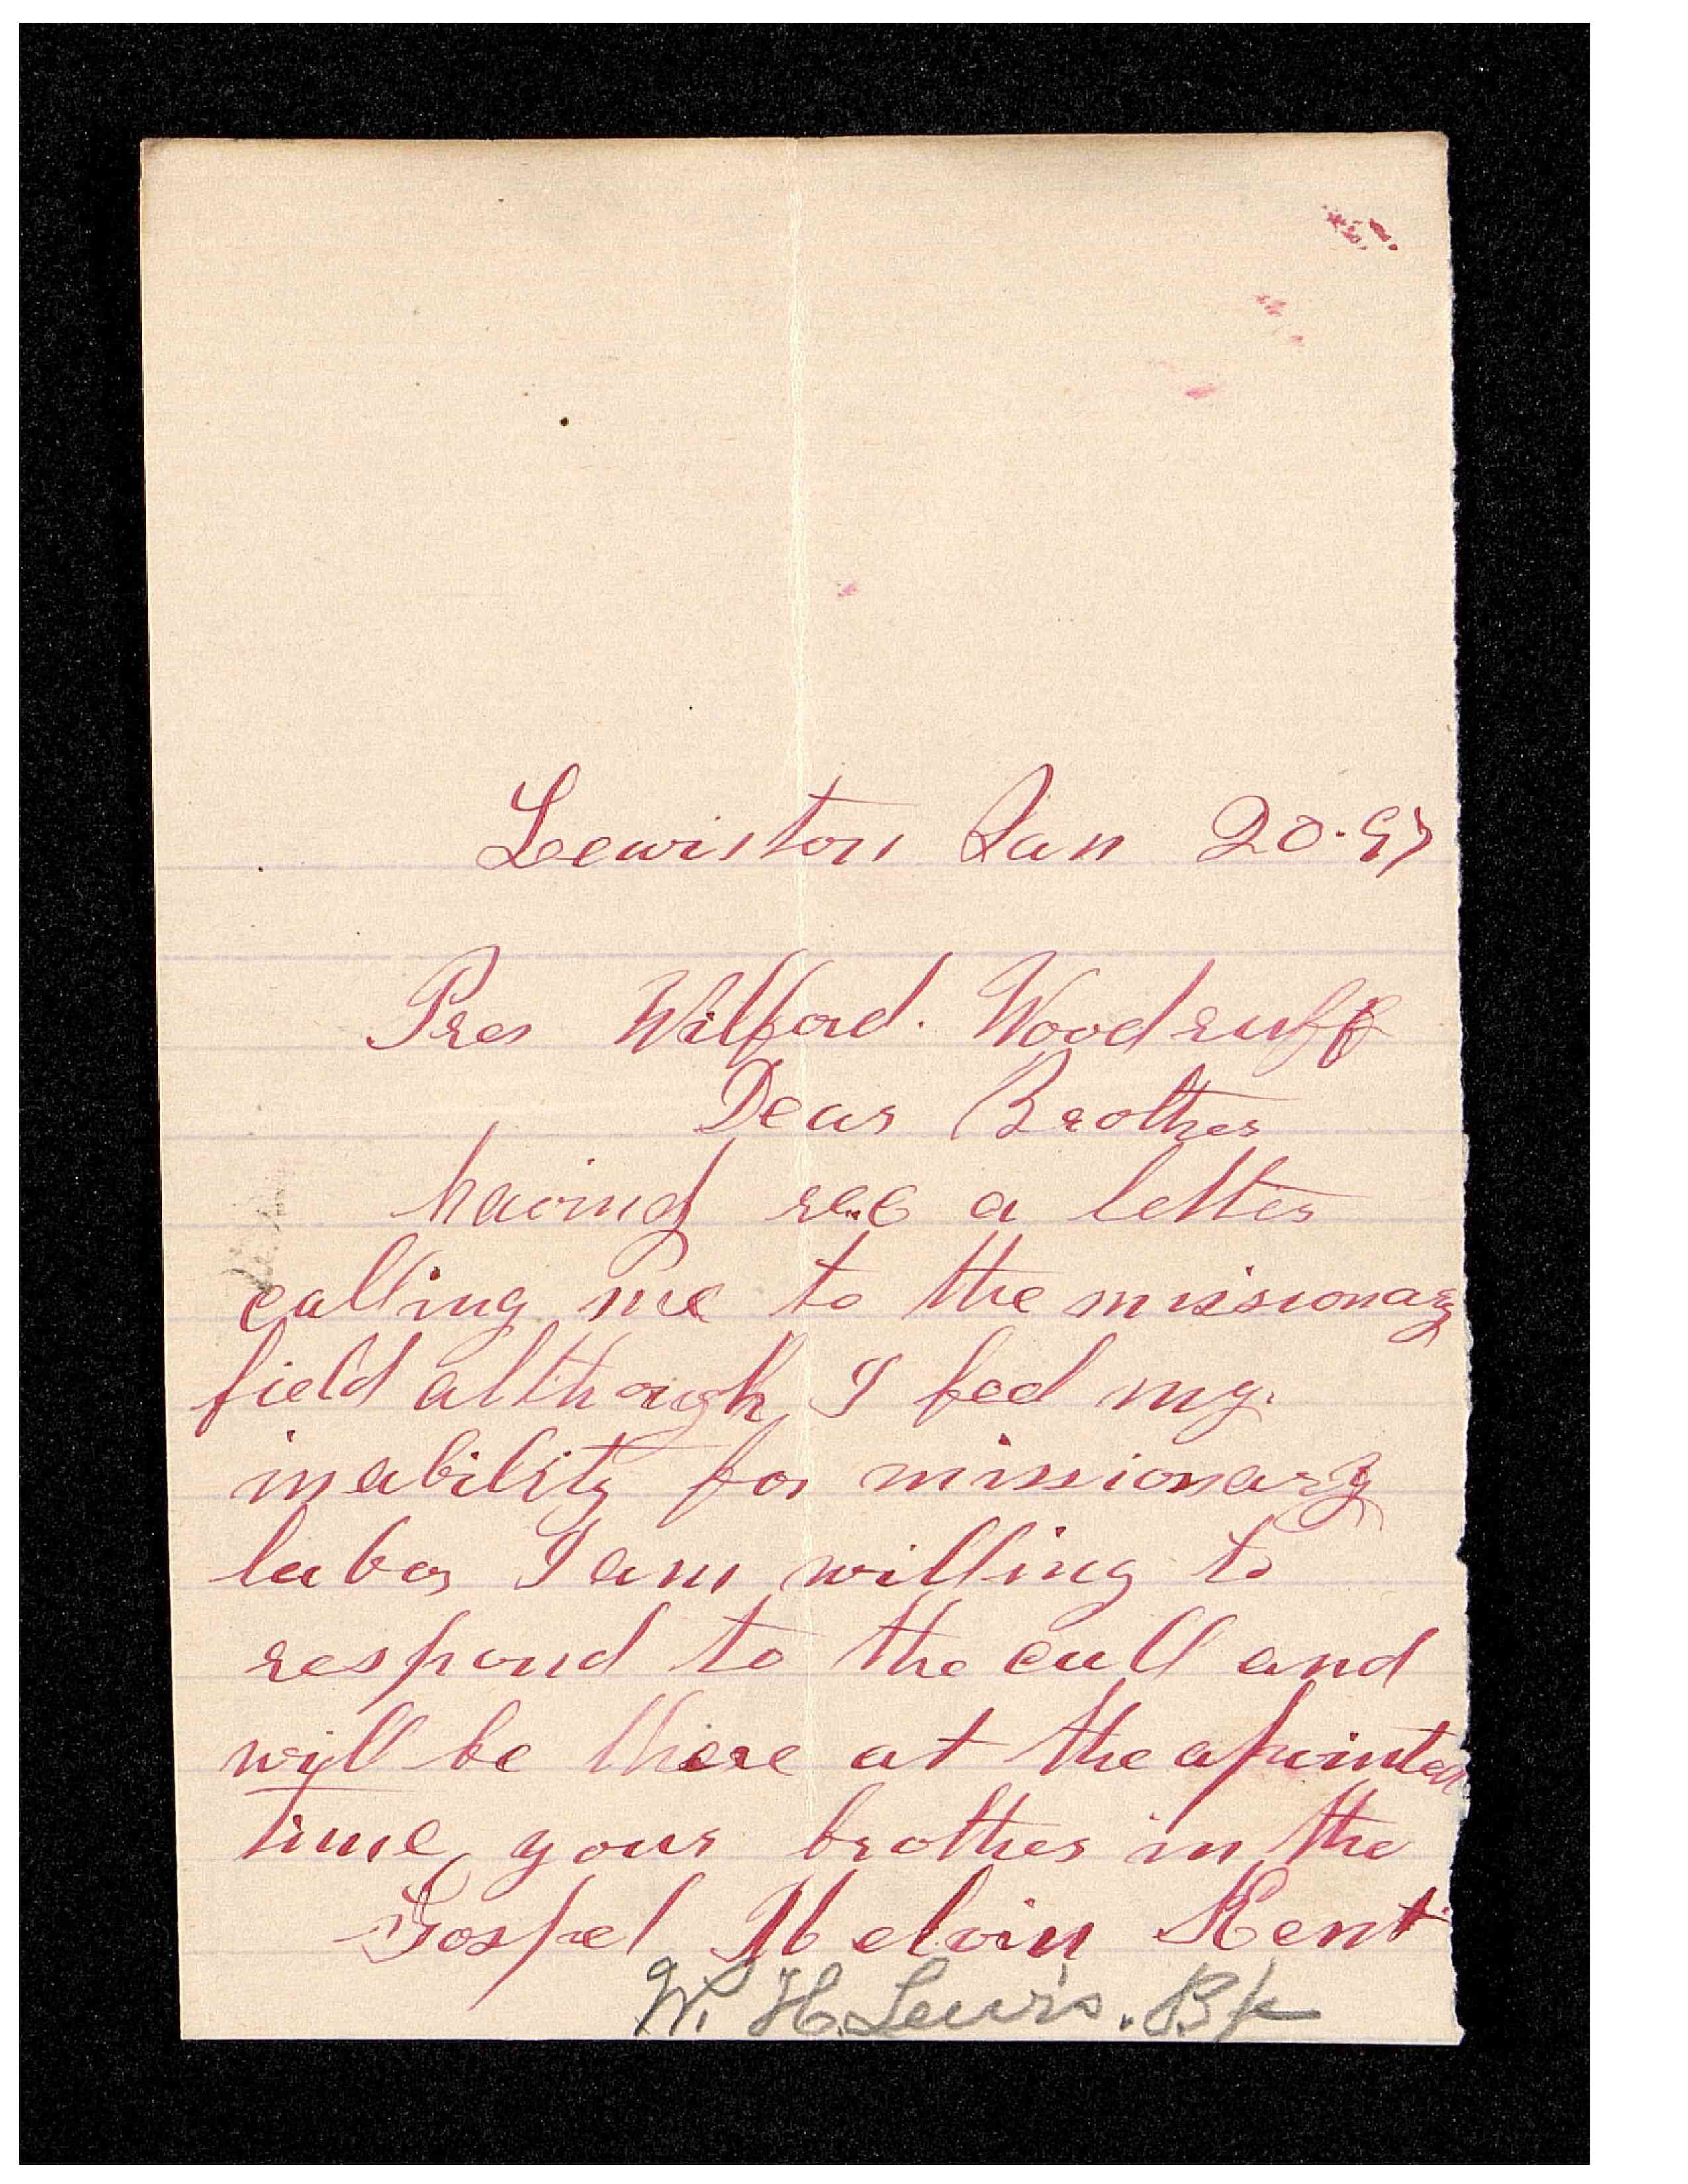 Lewiston Jan 20.97
Pres Wilford. Woodruff
Dear Brother
having rec a letter
calling me to the missionary
field although I feel my
inability for missionary
labor I am willing to
respond to the call and
will be there at the apointed
time your brother in the
Gospel Melvin Kent
W. H. Lewis. Bp